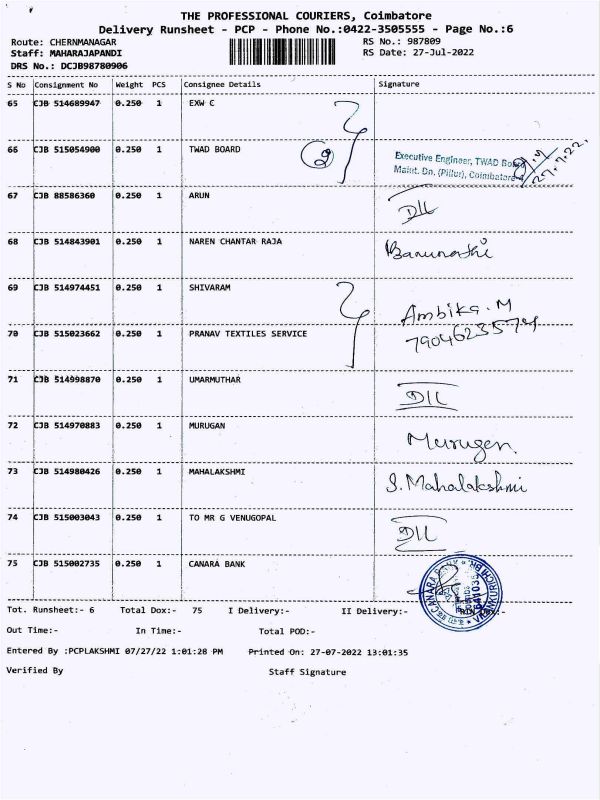 THE PROFESSIONAL COURIERS, Coimbatore
Delivery Runsheet - PCP - Phone No.:0422-3505555 - Page No.:6
Route: CHERNMANAGAR RS No.: 987809
Staff: MAHARAJAPANDI RS Date: 27-Jul-2022
DRS No.: DCJB98780906
S No Consignment No Weight PCS Consignee Details Signature
65 CJB 514689947 0.250 1 EXW C
66 CJB 515054900 0.250 1 TWAD BOARD 2
Executive Engineer, TWAD Board
Maint. Dn. (Pillur), Coimbatore-4
27.7.22
67 CJB 88586360 0.250 1 ARUN D/L
68 CJB 514843901 0.250 1 NAREN CHANTAR RAJA
69 CJB 514974451 0.250 1 SHIVARAM Ambika. M
70 CJB 515023662 0.250 1 PRANAV TEXTILES SERVICE 7904623574
71 CJB 514998870 0.250 1 UMARMUTHAR D/L
72 CJB 514970883 0.250 1 MURUGAN Murugen.
73 CJB 514980426 0.250 1 MAHALAKSHMI S. Mahalakshmi
74 CJB 515003043 0.250 1 TO MR G VENUGOPAL D/L
75 CJB 515002735 0.250 1 CANARA BANK
CANARA BANK
Tot. Runsheet:- 6 Total Dox:- 75 I Delivery:- II Delivery:-
Out Time:- In Time:- Total POD:-
Entered By :PCPLAKSHMI 07/27/22 1:01:28 PM Printed On: 27-07-2022 13:01:35
Verified By Staff Signature